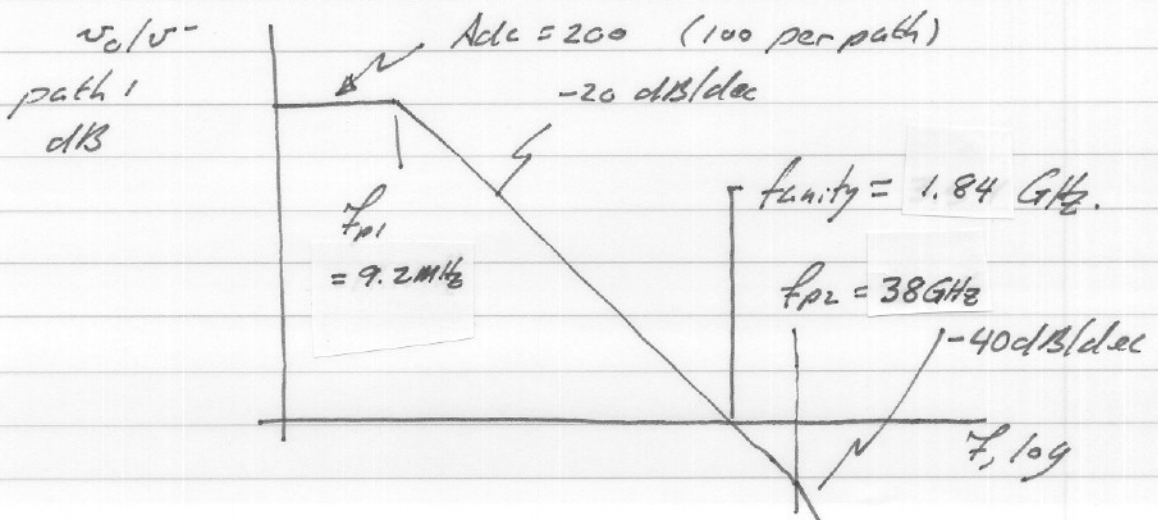 vo/v-
path 1
dB
Adc = 200 (100 per path)
-20 dB/dec
fp1
= 9.2MHz
funity = 1.84 GHz.
fp2 = 38GHz
-40dB/dec
f, log